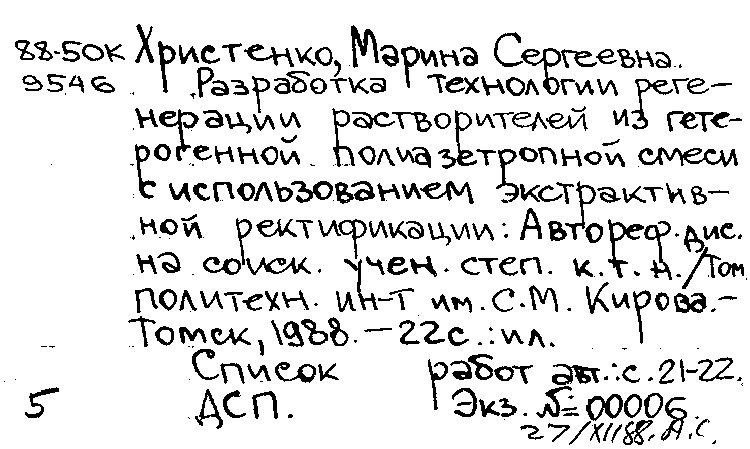 88-50К Христенко, Марина Сергеевна.
9546 Разработка технологии реге-
нерации растворителей из гете-
рогенной полиазетропной смеси
с использованием экстрактив-
ной ректификации: Автореф. дис.
на соиск. учен. степ. к.т.н./Том.
политехн. ин-т им. С.М. Кирова.-
Томск, 1988.-22с.:ил.
Список работ авт.:с.21-22.
5 ДСП. Экз. №=00006.
27/XII88. А.С.